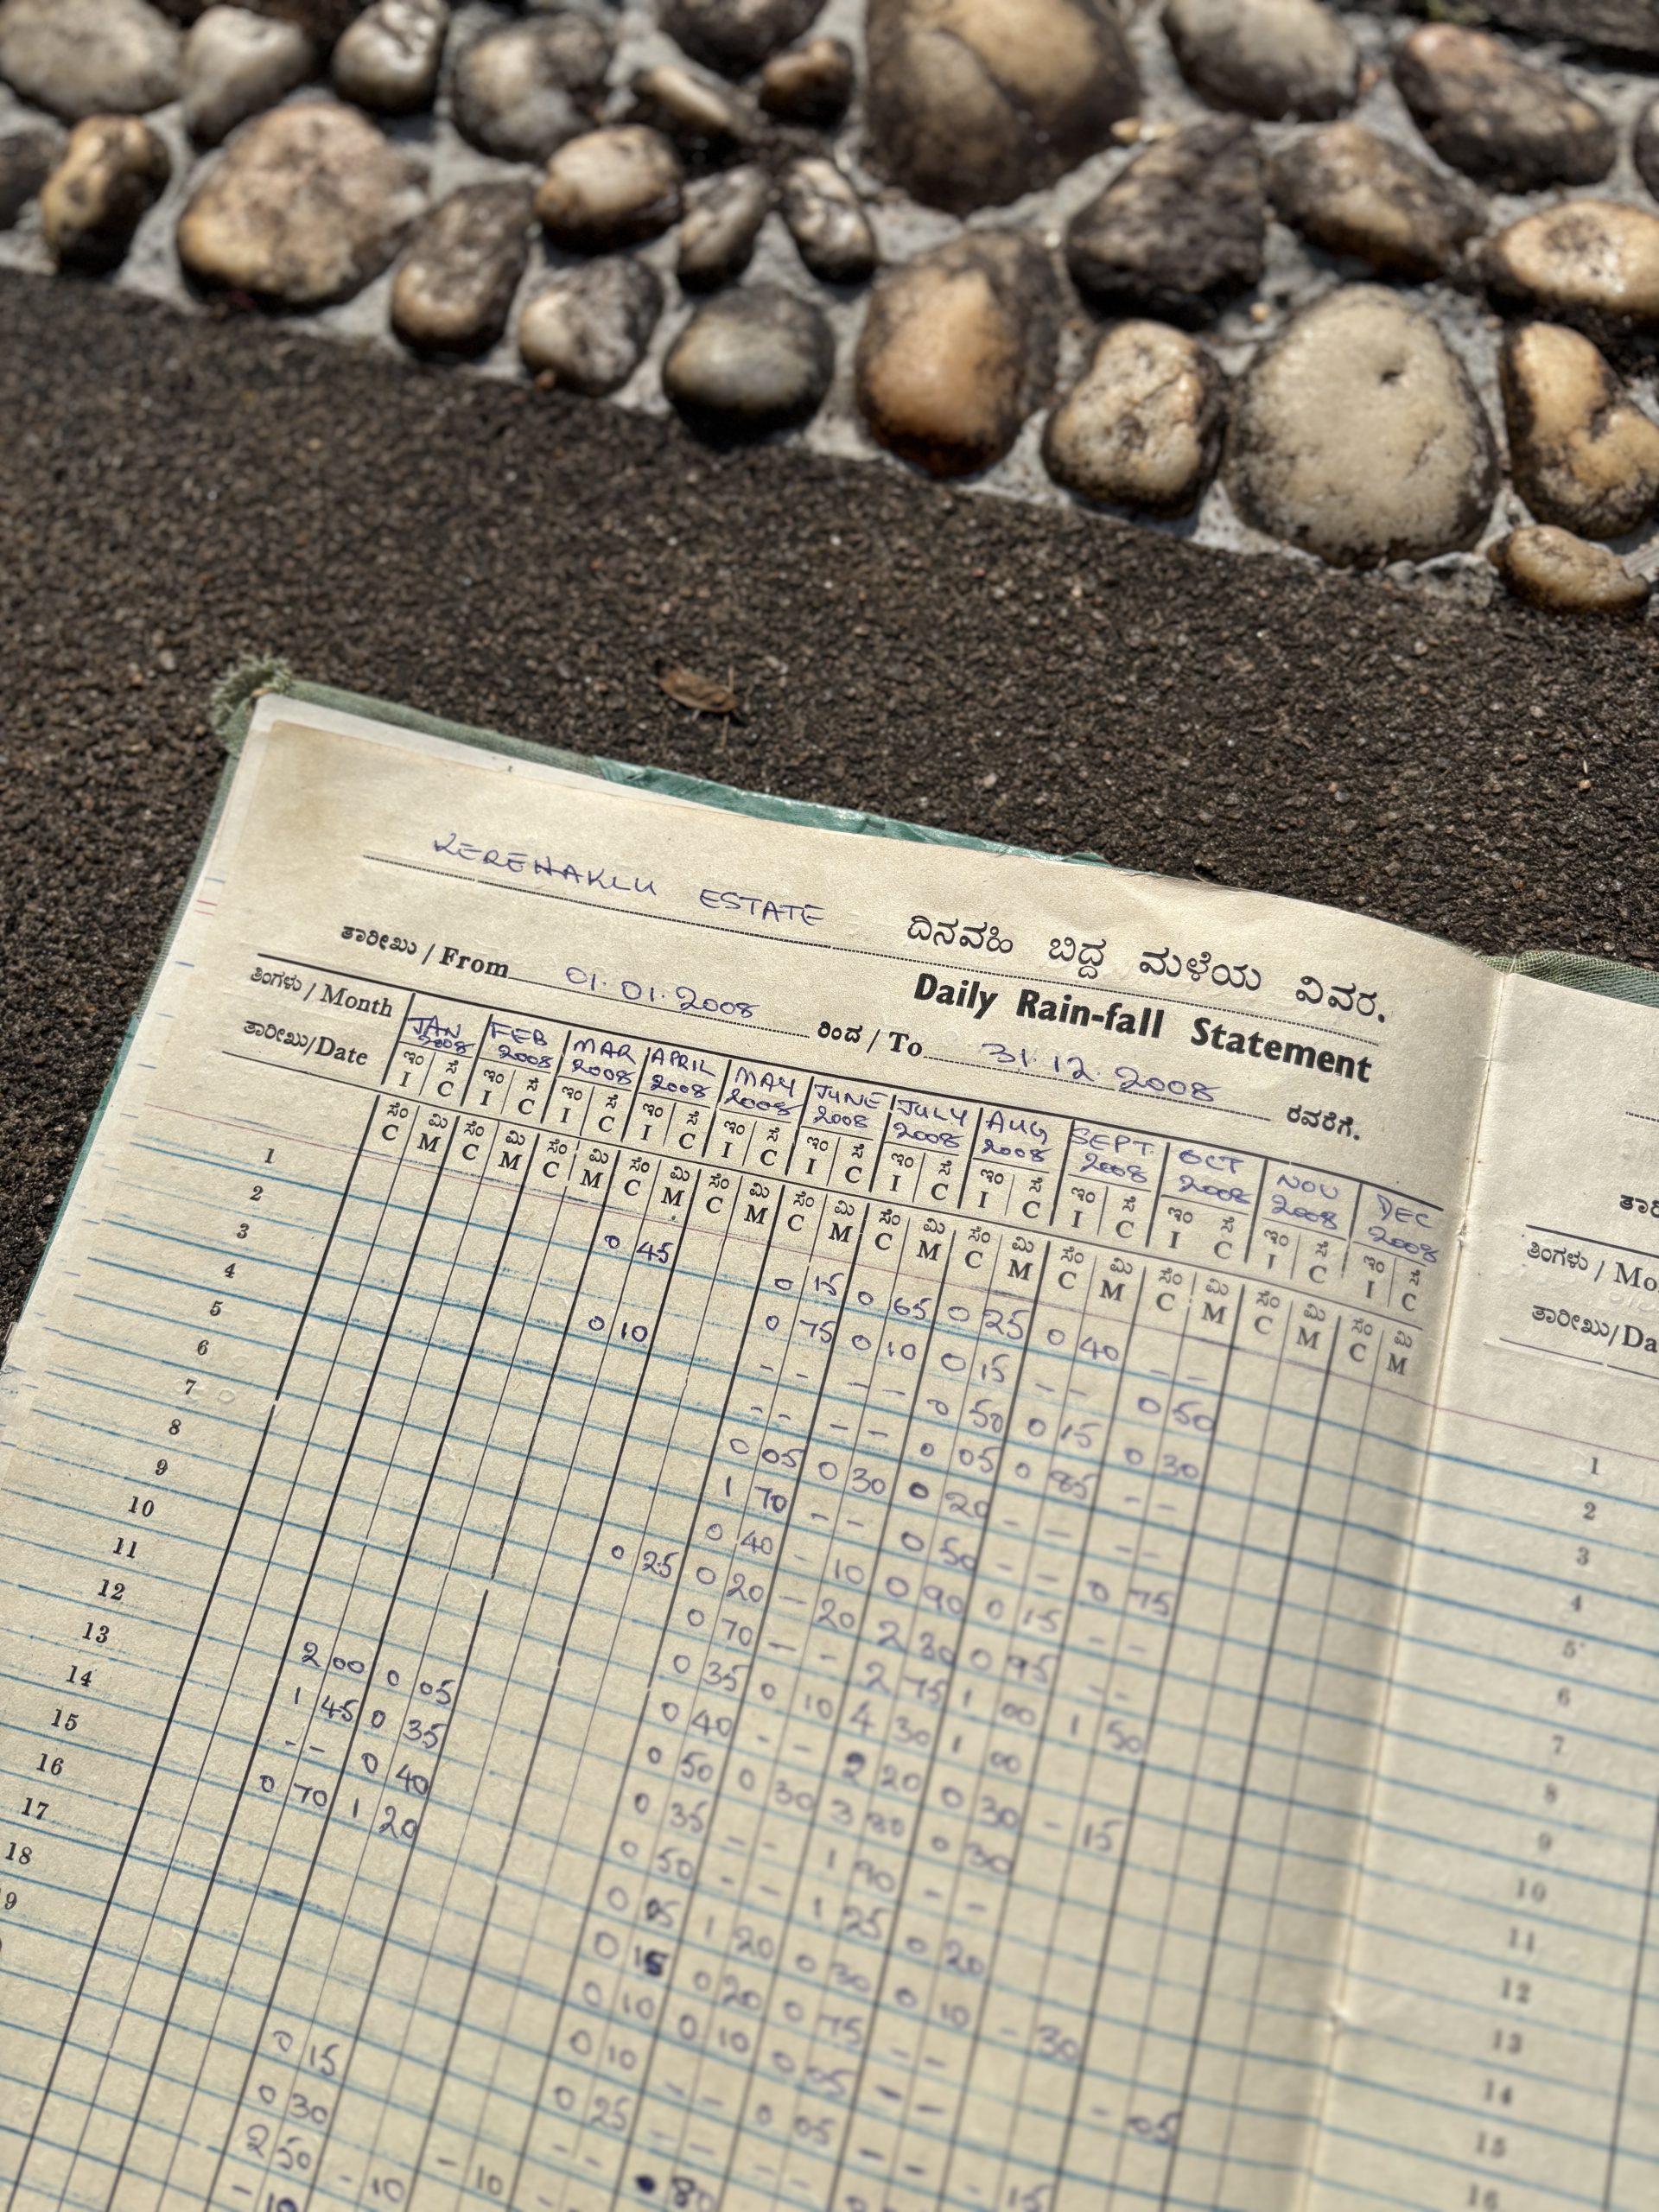 KEREHAKLU ESTATE ದಿನವಹಿ ಬಿದ್ದ ಮಳೆಯ ವಿವರ.
Daily Rain-fall Statement
ತಾರೀಖು / From 01.01.2008 ರಿಂದ / To 31.12.2008 ರವರೆಗೆ.
ತಿಂಗಳು / Month JAN 2008 FEB 2008 MAR 2008 APRIL 2008 MAY 2008 JUNE 2008 JULY 2008 AUG 2008 SEPT. 2008 OCT 2008 NOV 2008 DEC 2008
ತಾರೀಖು/Date ಇಂ ಸೆ ಇಂ ಸೆ ಇಂ ಸೆ ಇಂ ಸೆ ಇಂ ಸೆ ಇಂ ಸೆ ಇಂ ಸೆ ಇಂ ಸೆ ಇಂ ಸೆ ಇಂ ಸೆ ಇಂ ಸೆ ಇಂ ಸೆ
I C I C I C I C I C I C I C I C I C I C I C I C
ಸೆಂ ಮಿ ಸೆಂ ಮಿ ಸೆಂ ಮಿ ಸೆಂ ಮಿ ಸೆಂ ಮಿ ಸೆಂ ಮಿ ಸೆಂ ಮಿ ಸೆಂ ಮಿ ಸೆಂ ಮಿ ಸೆಂ ಮಿ ಸೆಂ ಮಿ ಸೆಂ ಮಿ
C M C M C M C M C M C M C M C M C M C M C M C M
1 0 45 0 15 0 65 0 25 0 40 - -
2 0 75 0 10 0 15 - - 0 50
3 0 10 - - - - 0 50 0 15 0 30
4 - - - - 0 05 0 85 - -
5 0 05 0 30 0 20 - - - -
6 1 70 - - 0 50 - - 0 75
7 0 40 - 10 0 90 0 15 - -
8 0 25 0 20 - 20 2 30 0 95 - -
9 0 70 - - 2 75 1 00 1 50
10 0 35 0 10 4 30 1 00
11 0 40 - - 2 20 0 30 - 15
12 2 00 0 05 0 50 0 30 3 80 0 30
13 1 45 0 35 0 35 - - 1 90 - -
14 - - 0 40 0 50 - - 1 25 0 20
15 0 70 1 20 1 20 0 30 0 10 - 30
16 0 15 0 20 0 75 - -
17 0 10 0 10 0 05 - - - 05
18 0 10 - - 0 05 - -
0 15 0 25 - - - - - 15
0 30
2 50 - 10 - 10 80
- 10
ತಿಂಗಳು / Mo
ತಾರೀಖು/Da
1
2
3
4
5
6
7
8
9
10
11
12
13
14
15
16